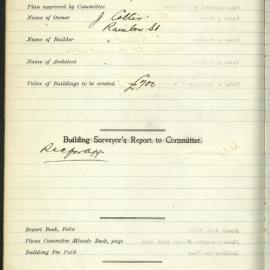 Plan approved by Committee
Name of Owner J Cotter
Rainbow St
Name of Builder "
Name of Architect
Value of Buildings to be erected £700
Building Surveyor's Report to Committee.
Rec for app.
Report Book, Folio
Plans Committee Minute Book, page
Building Fee Paid